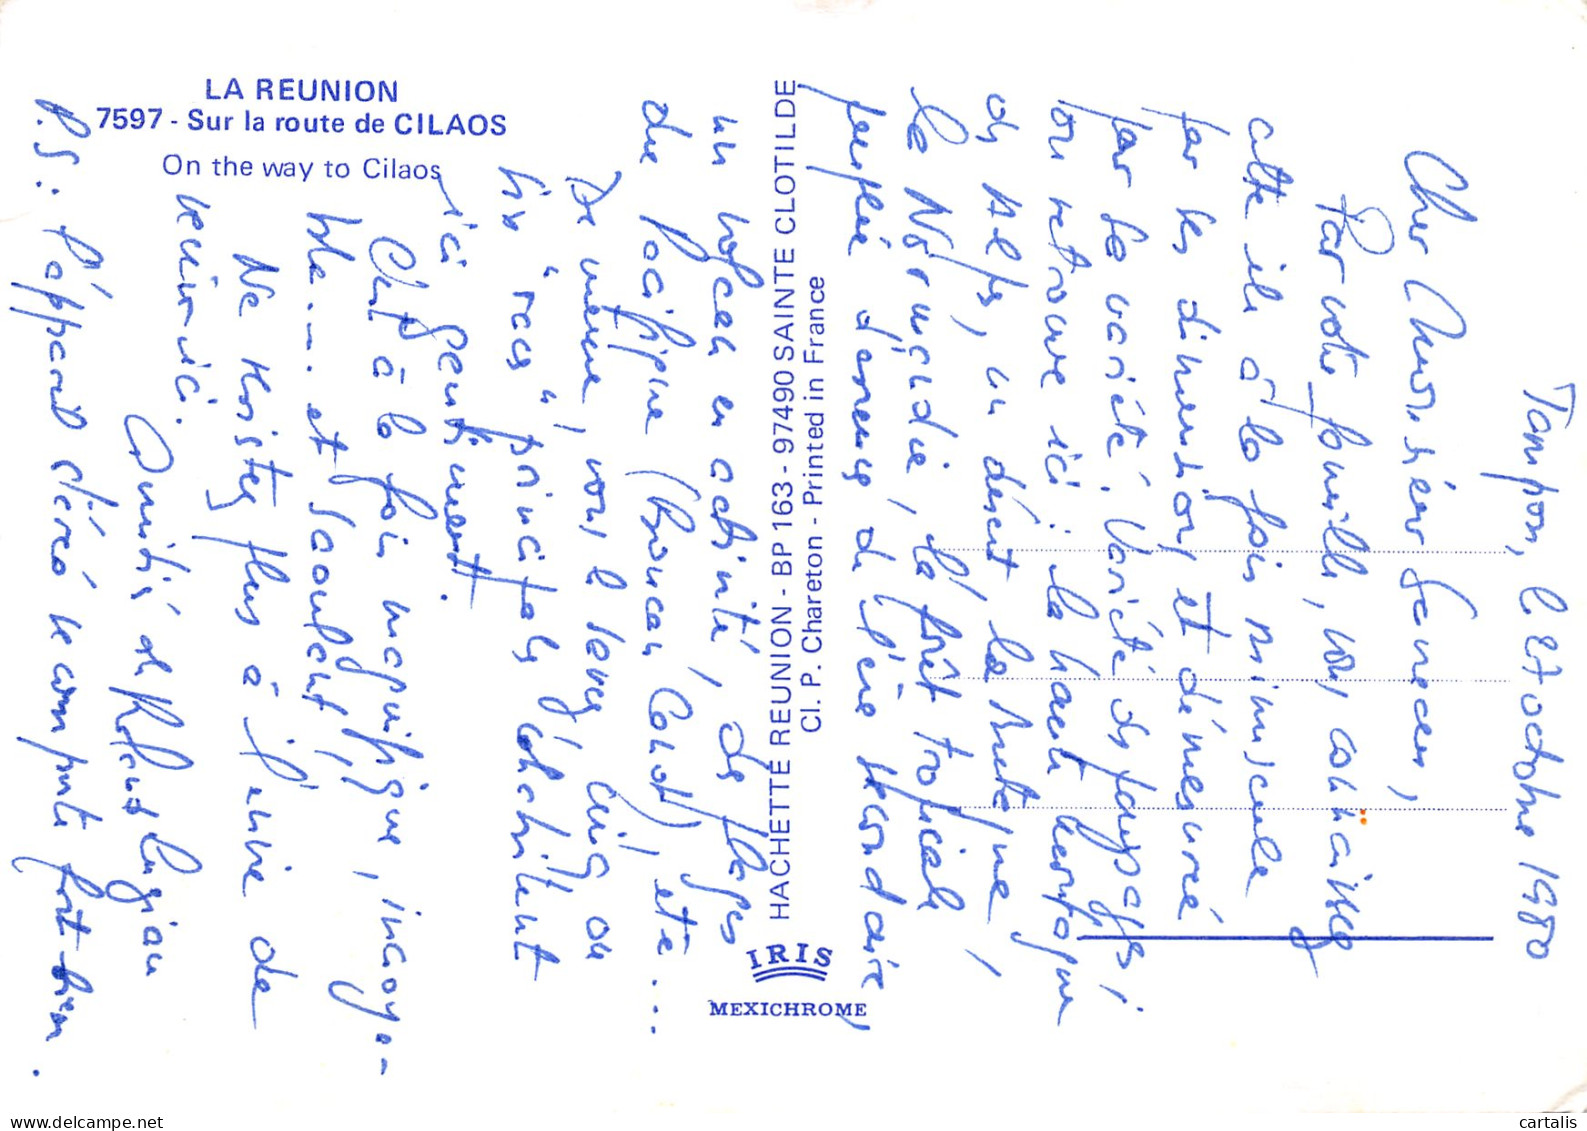 LA REUNION
7597 - Sur la route de CILAOS
On the way to Cilaos
HACHETTE REUNION - BP 163 - 97490 SAINTE CLOTILDE
Cl. P. Chareton - Printed in France
IRIS
MEXICHROME
Tampon, le 27 octobre 1980
Cher Monsieur
Par votre famille, vous connaissez
cette île à la fois minuscule
par ses dimensions et démesurée
par sa variété. Variété des paysages :
on retrouve ici : la haute montagne
des Alpes, un désert, la Bretagne,
la Normandie, la forêt tropicale
peuplée d'arbres de l'ère secondaire,
un volcan en activité, des plages
du Pacifique (Boucan Canot), etc...
De même, vous le savez, cinq ou
six "races" principales cohabitent
ici gentiment.
C'est à la fois magnifique, incroya-
ble... et saoulant !
Ne résistez plus à l'envie de
venir ici.
Amitiés de Roland
P.S : l'appareil stéréo se comporte fort bien.
cartalis